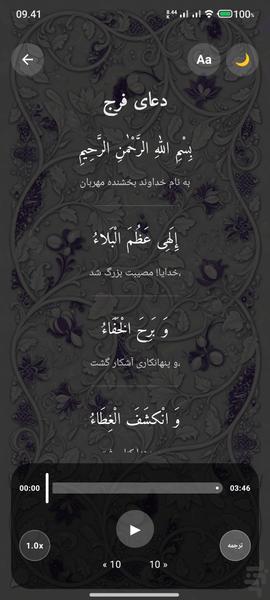 09.41
100%
Aa
دعای فرج
بِسْمِ اللهِ الرَّحْمٰنِ الرَّحِيمِ
به نام خداوند بخشنده مهربان
إِلَهِي عَظُمَ الْبَلاءُ
خدایا! مصیبت بزرگ شد،
وَ بَرِحَ الْخَفَاءُ
و پنهانکاری آشکار گشت،
وَ انْكَشَفَ الْغِطَاءُ
00:00 03:46
1.0x
ترجمه
« 10 10 »